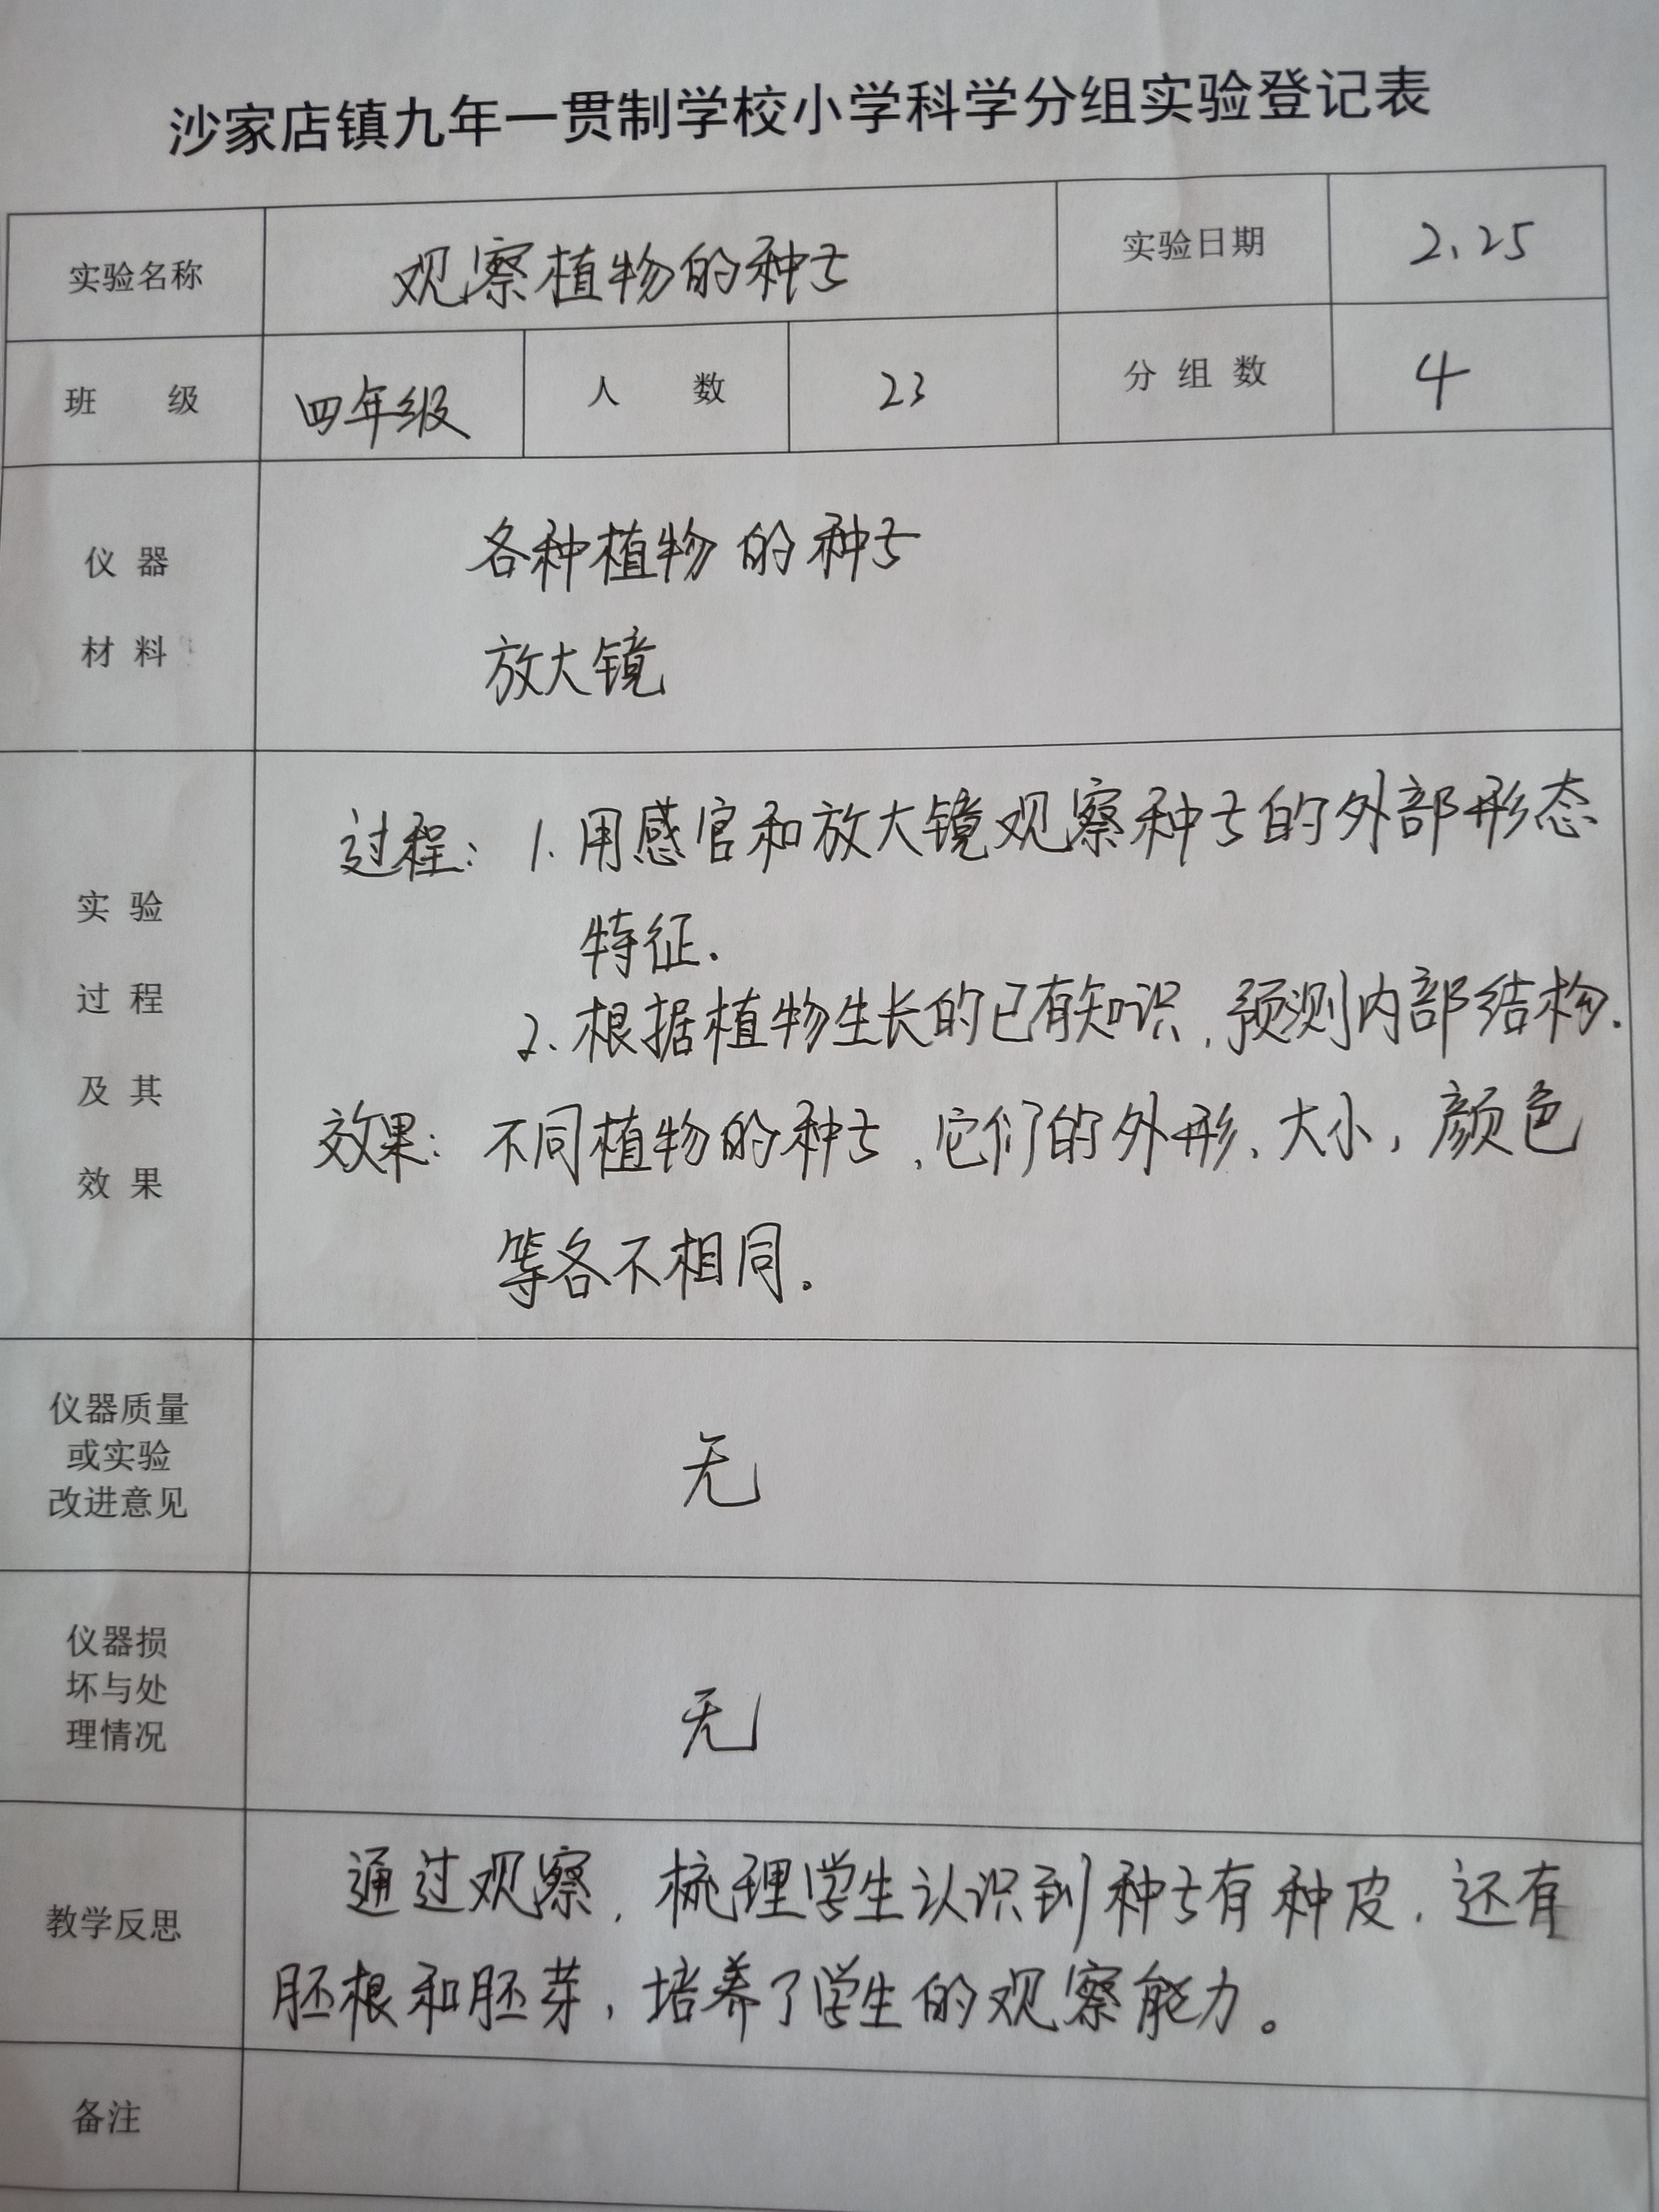 沙家店镇九年一贯制学校小学科学分组实验登记表
实验名称 观察植物的种子 实验日期 2.25
班 级 四年级 人 数 23 分组数 4
仪器
材料
各种植物的种子
放大镜
实验
过程
及其
效果
过程: 1.用感官和放大镜观察种子的外部形态
特征.
2.根据植物生长的已有知识,预测内部结构.
效果: 不同植物的种子,它们的外形、大小,颜色
等各不相同。
仪器质量
或实验
改进意见
无
仪器损
坏与处
理情况
无
教学反思
通过观察,梳理学生认识到种子有种皮,还有
胚根和胚芽,培养了学生的观察能力。
备注